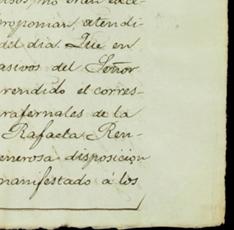 proponian, atendi-
del dia. Que en
asivos del Señor
rendido el corres-
rafernales de la
Rafaela Ren-
enerosa disposicion
manifestado á los